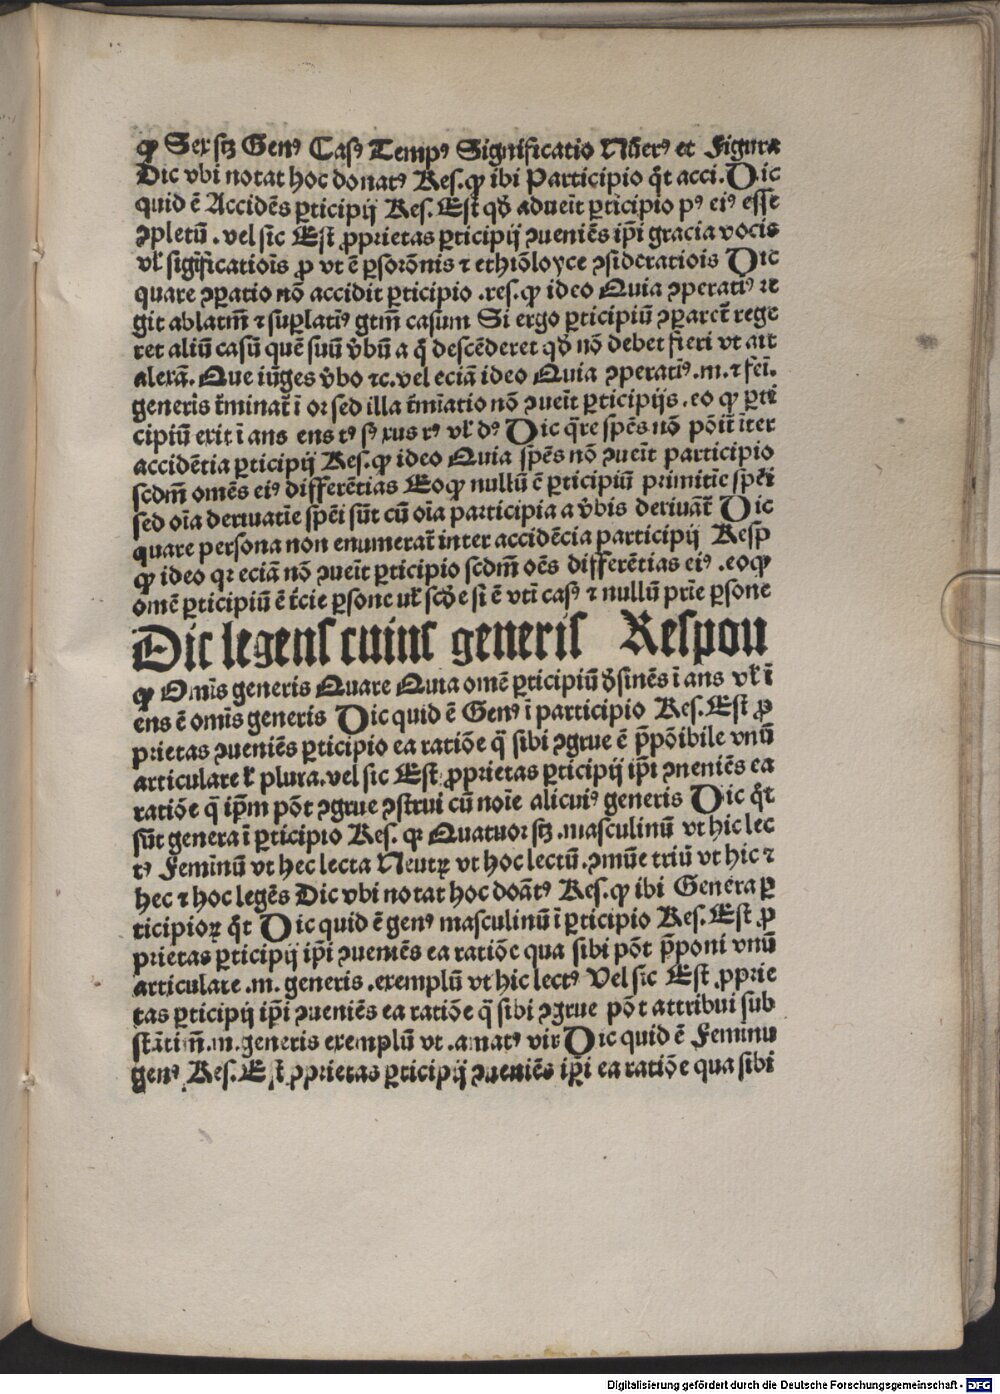 ꝙ Sex sꝫ Genꝰ Casꝰ Tempꝰ Significatio Nũerꝰ et Figura
Dic vbi notat hoc donatꝰ Res.ꝙ ibi Participio q̃t acci. Dic
quid ē Accidēs ꝑticipij Res. Est qđ adueīt ꝑticipio pꝰ eiꝰ esse
ꝯpletū. vel sic Est ꝓprietas ꝑticipij ꝯueniēs ip̄i gracia vocis
vł significatiōis ꝓ vt ē ꝑsorōnis ⁊ ethiōloyce ꝯsideratiois Dic
quare ꝯꝑatio nō accidit ꝑticipio .res.ꝙ ideo Quia ꝯperatiꝰ re
git ablatiṁ ⁊ suꝑlatiꝰ gtm̄ casum Si ergo ꝑticipiū ꝯꝑaret᷑ rege
ret aliū casū quē suū v̄bū a q̊ descēderet qđ nō debet fieri vt ait
alexā. Que iūges v̄bo ⁊c. vel eciā ideo Quia ꝯperatiꝰ.m.⁊ fei̅.
generis t̄minat᷑ ī or sed illa t̄mīatio nō ꝯueīt ꝑticipijs .eo ꝙ ꝑti
cipiū exit ī ans ens tꝰ sꝰ xus rꝰ vł dꝰ Dic q̄re spēs nō pōit᷑ īter
accidētia ꝑticipij Res.ꝙ ideo Quia spēs nō ꝯueīt participio
scdm̄ omēs eiꝰ differētias Eoꝙ nullū ē ꝑticipiū primitīe spēi
sed oīa deriuatīe spēi sūt cū oīa participia a v̄bis deriuāt᷑ Dic
quare persona non enumerat᷑ inter accidēcia participij Resp̄
ꝙ ideo qꝛ eciā nō ꝯueīt ꝑticipio scdm̄ oēs differētias eiꝰ .eoꝙ
omē ꝑticipiū ē t̄cie ꝑsone vł scđe si ē vti̅ casꝰ ⁊ nullū pri̅e ꝑsone
Dic legens cuius generis Respon
ꝙ Omīs generis Quare Quia omē ꝑticipiū đsinēs ī ans vł ī
ens ē omīs generis Dic quid ē Genꝰ ī participio Res. Est ꝓ
prietas ꝯueniēs ꝑticipio ea ratiōe q̄ sibi ꝯgrue ē p̄pōibile vnū
articulare ł plura. vel sic Est ꝓprietas ꝑticipij ip̄i ꝯneniēs ea
ratiōe q̄ ip̄m pōt ꝯgrue ꝯstrui cū noīe alicuiꝰ generis Dic q̊t
sūt genera ī ꝑticipio Res. ꝙ Quatuor sꝫ .masculinū vt hic lec
tꝰ Feminū vt hec lecta Neutꝝ vt hoc lectū. ꝯmūe triū vt hic ⁊
hec ⁊ hoc legēs Dic vbi notat hoc doātꝰ Res.ꝙ ibi Genera ꝑ
ticipioꝝ q̄t Dic quid ē genꝰ masculinū ī ꝑticipio Res. Est ꝓ
prietas ꝑticipij ip̄i ꝯueniēs ea ratiōe qua sibi pōt p̄poni vnū
articulare .m. generis .exemplū vt hic lectꝰ Vel sic Est ꝓprie
tas ꝑticipij ip̄i ꝯueniēs ea ratiōe q̄ sibi ꝯgrue pōt attribui sub
stātim̄.m.generis exemplū vt .amatꝰ vir Dic quid ē Feminu
genꝰ Res. Est ꝓprietas ꝑticipij ꝯueniēs ip̄i ea ratiōe qua sibi
Digitalisierung gefördert durch die Deutsche Forschungsgemeinschaft - DFG